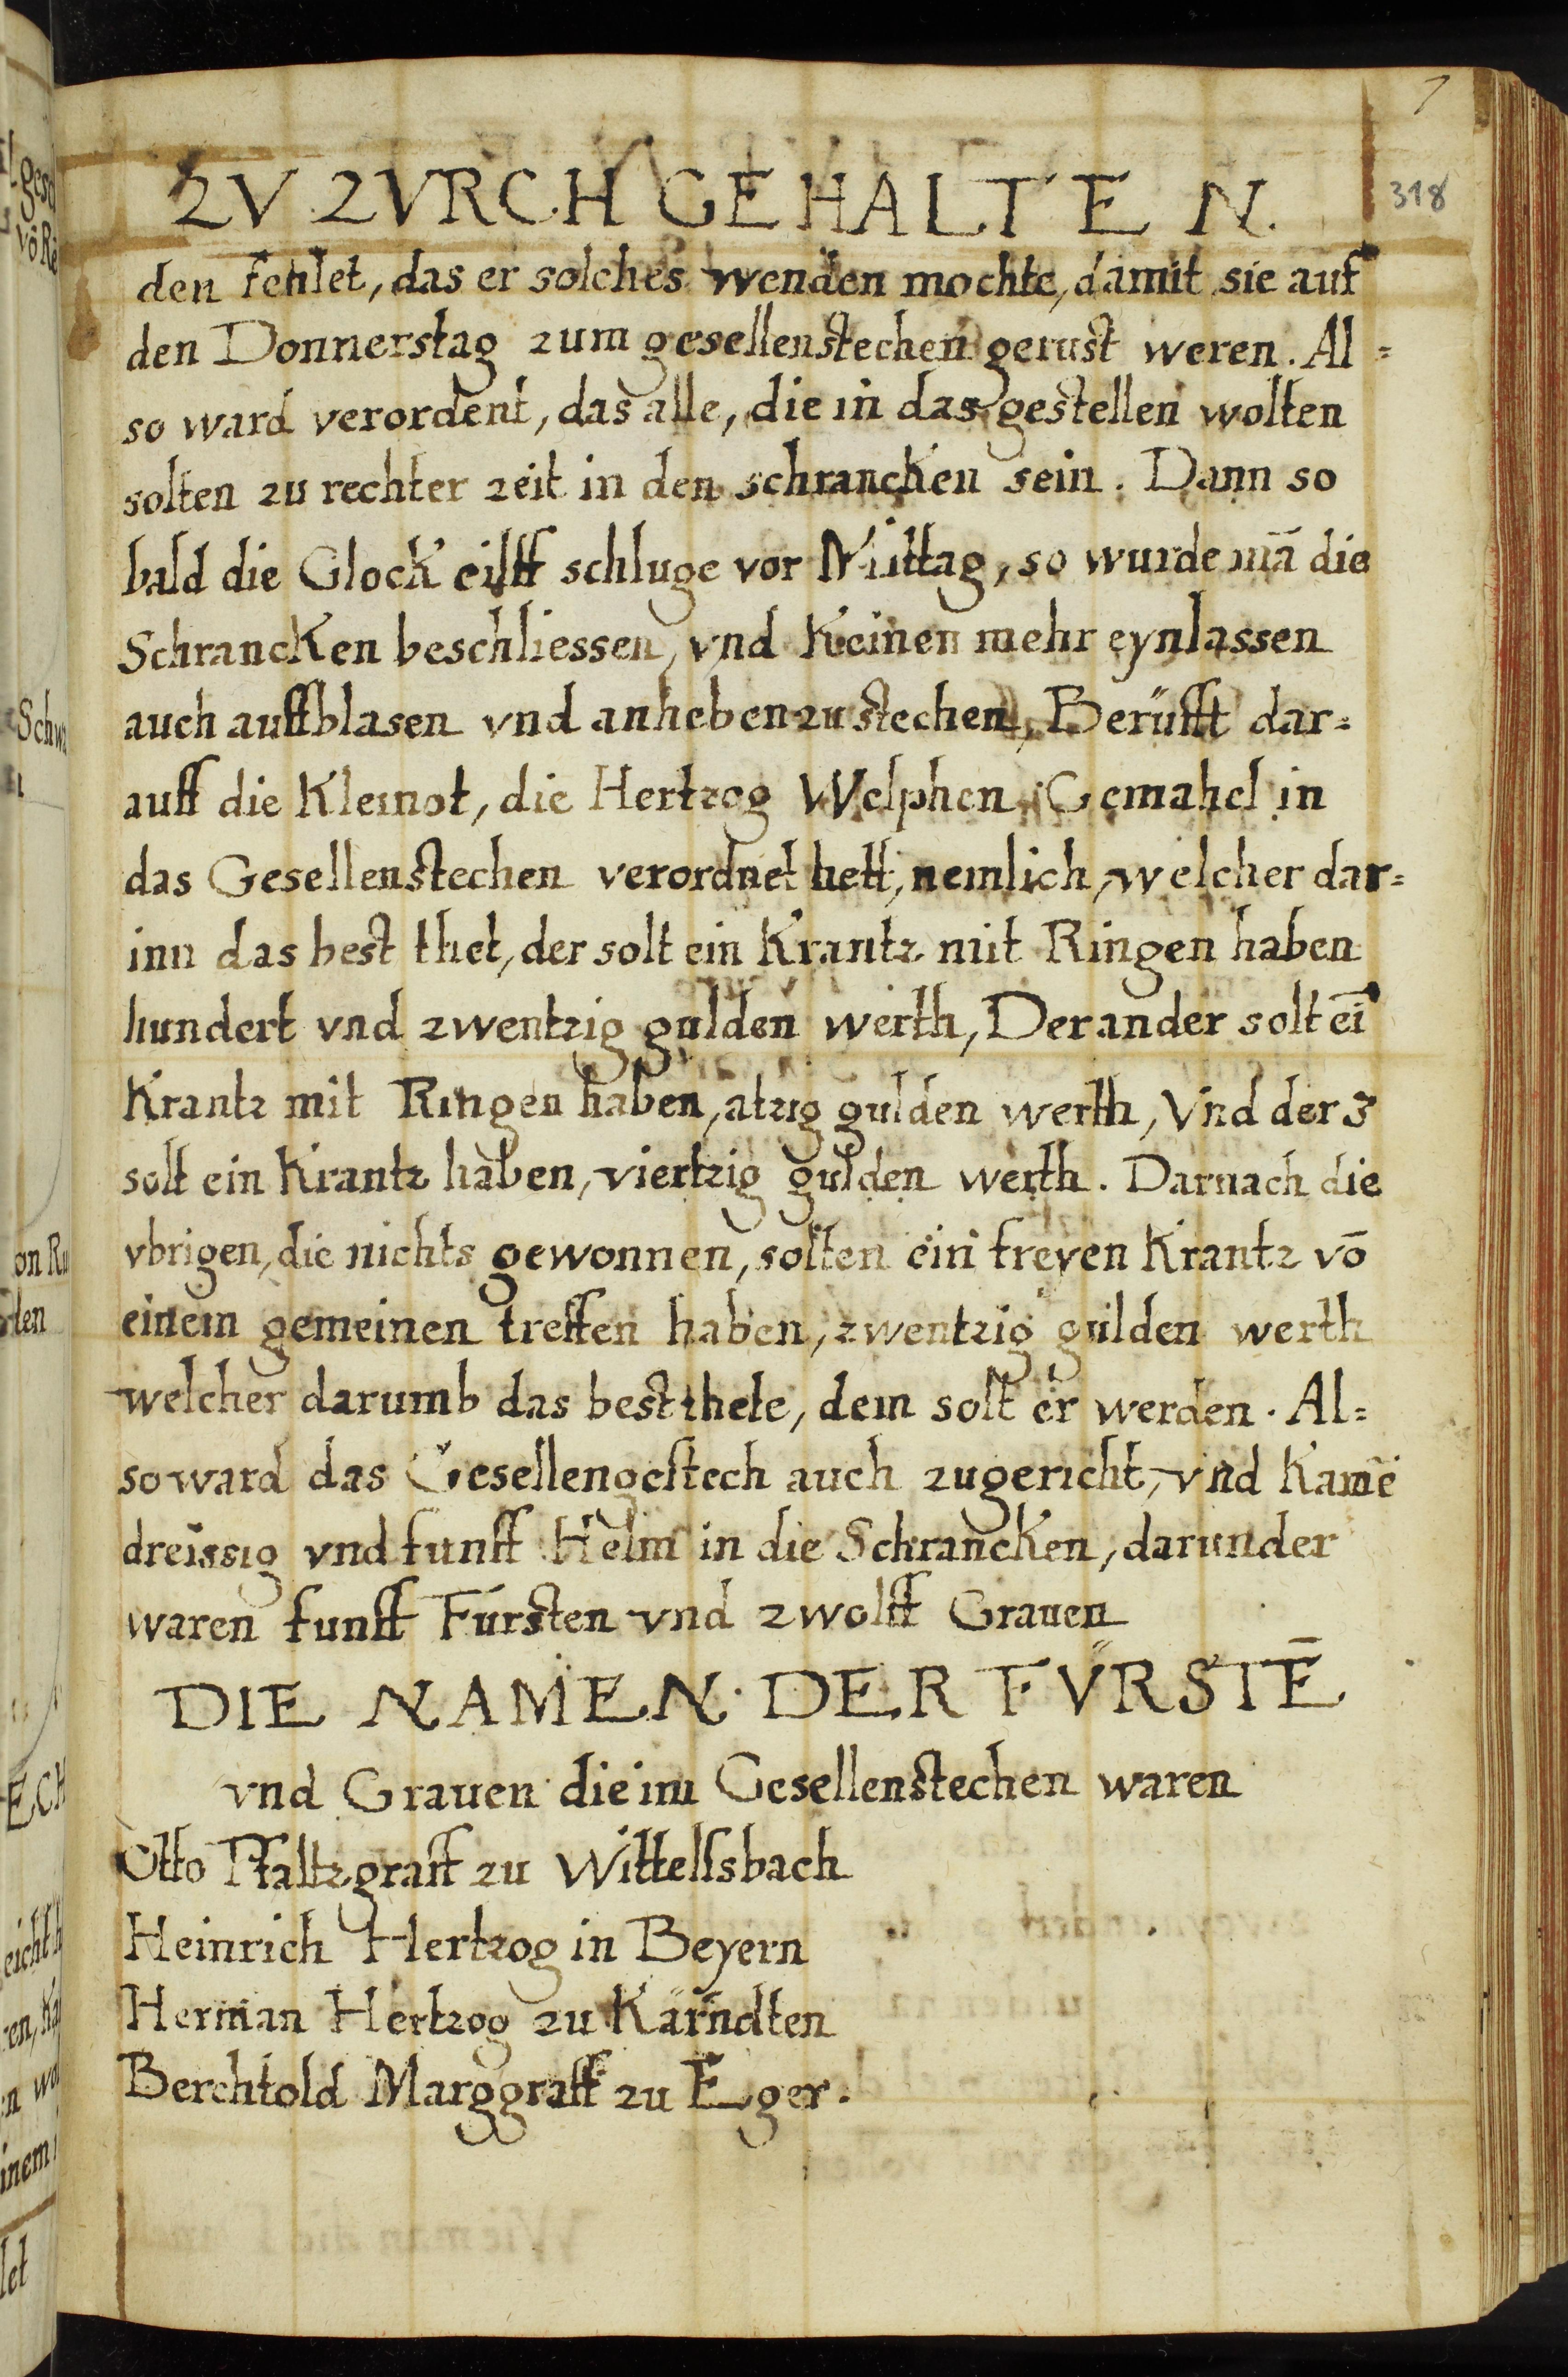 318
ZV ZVRCH GEHALTEN.
den fehlet, das er solches wenden mochte, damit sie auf
den Donnerstag zum gesellenstechen gerust weren. Al=
so ward verordent, das alle, die in das gestellen wolten
solten zu rechter zeit in den schrancken sein. Dann so
bald die Glock eilff schluge vor Mittag, so wurde mā die
Schrancken beschliessen, vnd keinen mehr eynlassen
auch auffblasen vnd anheben zu stechen, Berüfft dar=
auff die Kleinot, die Hertzog Welphen Gemahel in
das Gesellenstechen verordnet hett, nemlich, welcher dar=
inn das best thet, der solt ein Krantz mit Ringen haben
hundert vnd zwentzig gulden werth, Der ander solt eī
Krantz mit Ringen haben, atzig gulden werth, Vnd der 3
solt ein Krantz haben, viertzig gulden werth. Darnach die
vbrigen, die nichts gewonnen, solten ein freyen Krantz vō
einem gemeinen treffen haben, zwentzig gulden werth
welcher darumb das best thete, dem solt er werden. Al=
so ward das Gesellengestech auch zugericht, vnd Kamē
dreissig vnd funff Helm in die Schrancken, darunder
waren funff Fürsten vnd zwolff Grauen
DIE NAMEN DER FÜRSTĒ
vnd Grauen die im Gesellenstechen waren
Otto Pfaltzgraff zu Wittelsbach
Heinrich Hertzog in Beyern
Herman Hertzog zu Kärndten
Berchtold Marggraff zu Eger.